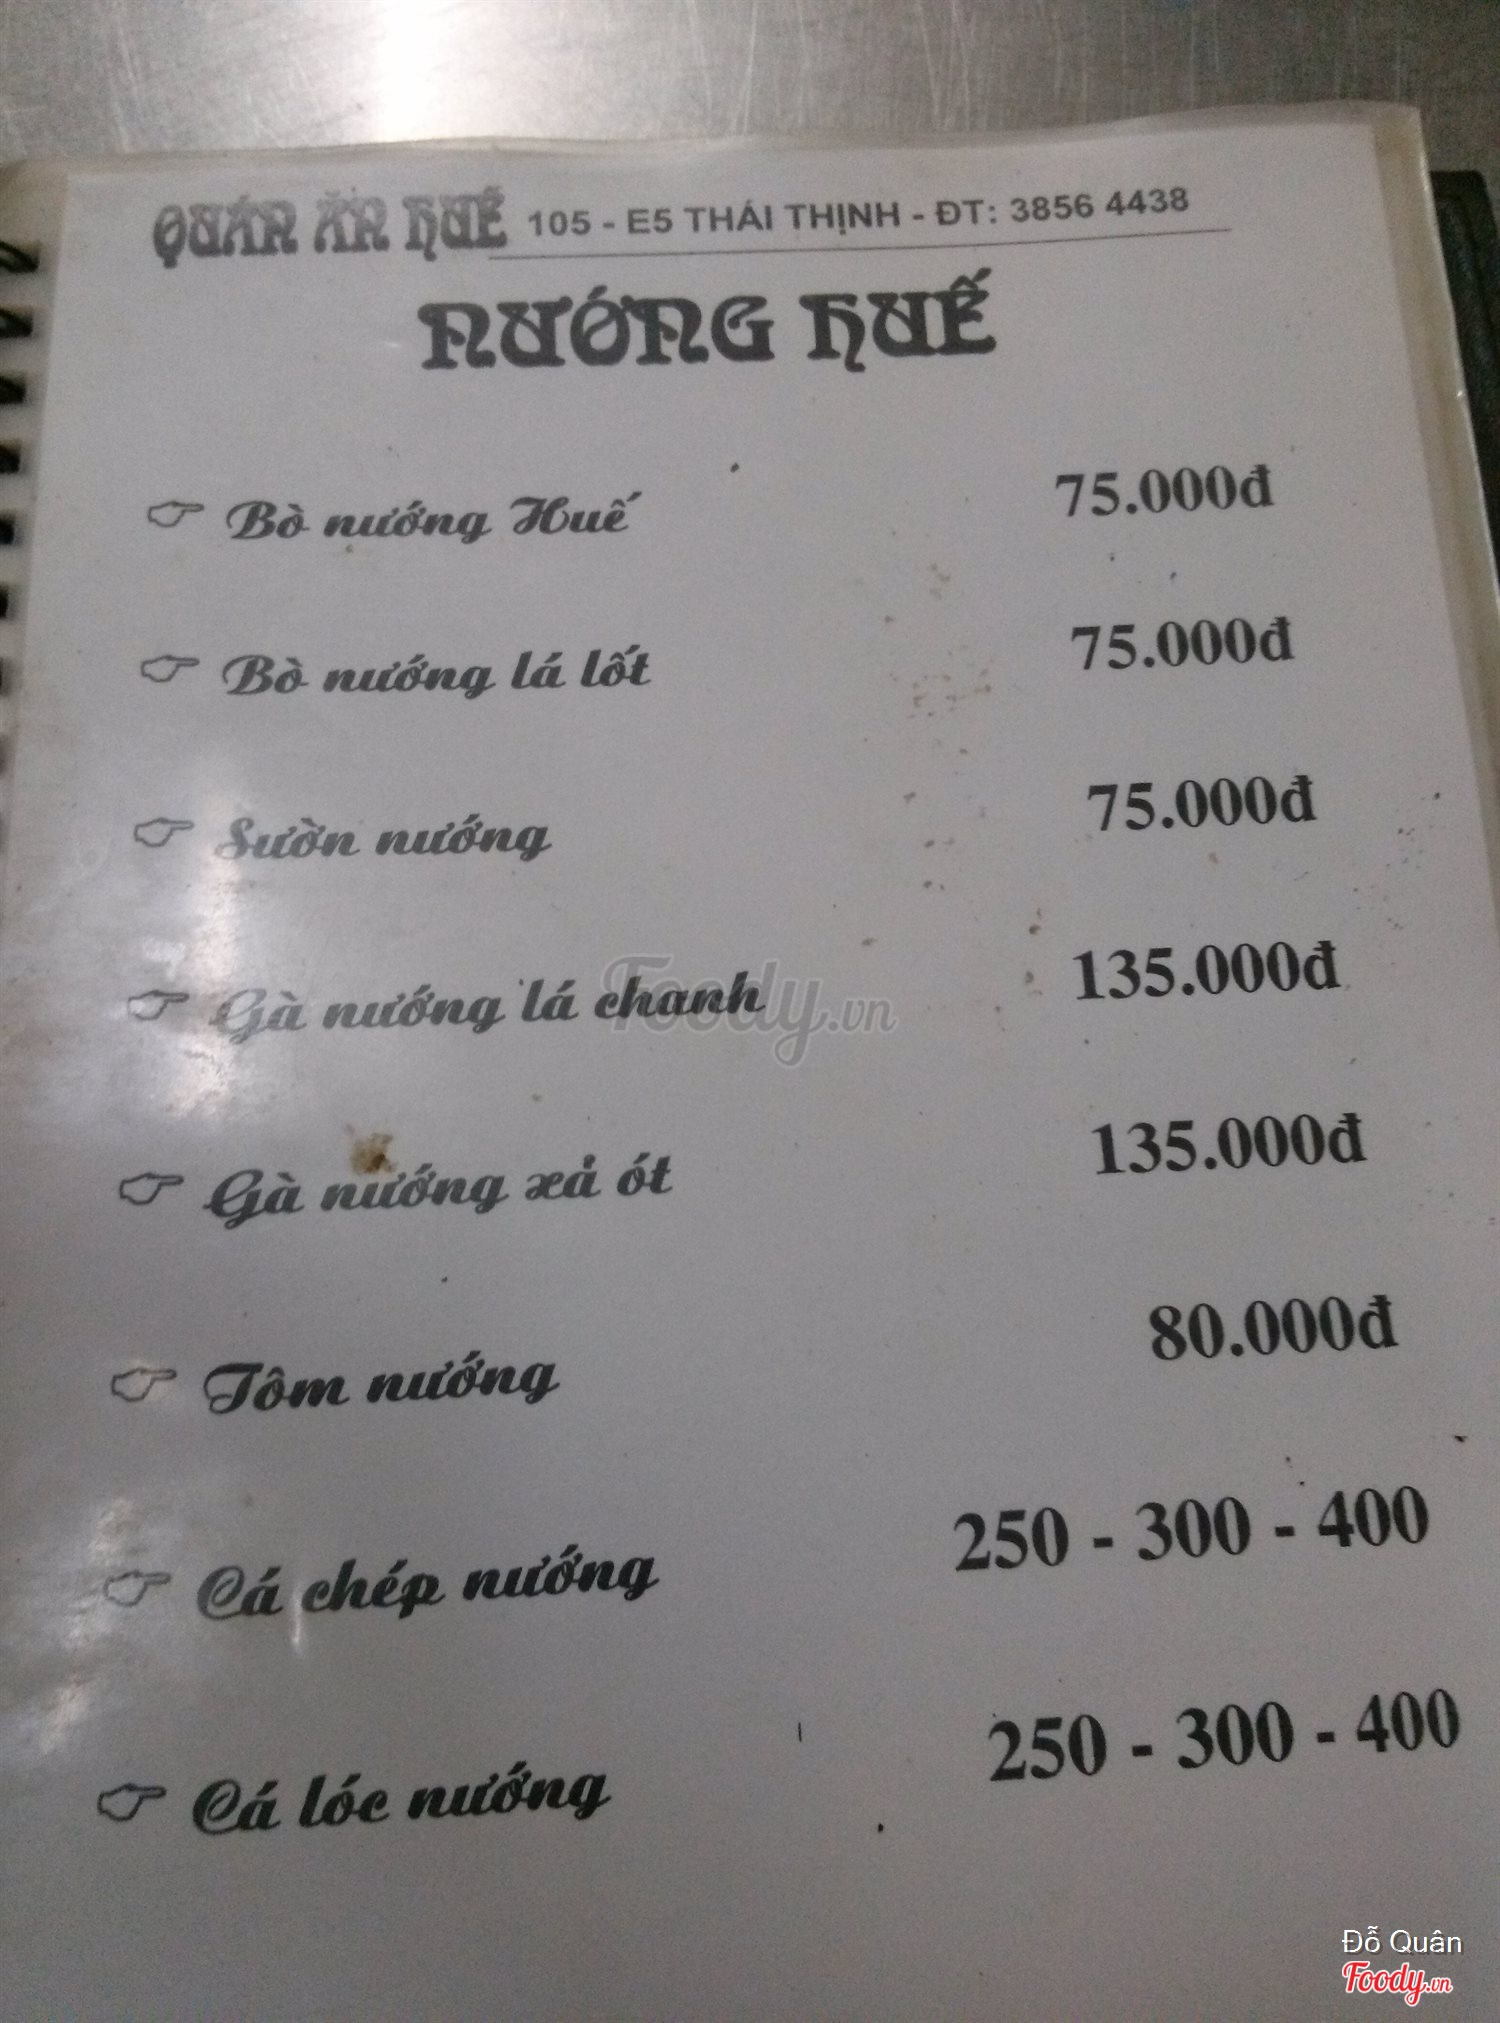 QUÁN ĂN HUẾ 105 - E5 THÁI THỊNH - ĐT: 3856 4438
NƯỚNG HUẾ
Bò nướng Huế 75.000đ
Bò nướng lá lốt 75.000đ
Sườn nướng 75.000đ
Gà nướng lá chanh 135.000đ
Foody.vn
Gà nướng xả ớt 135.000đ
Tôm nướng 80.000đ
Cá chép nướng 250 - 300 - 400
Cá lóc nướng 250 - 300 - 400
Đỗ Quân
Foody.vn